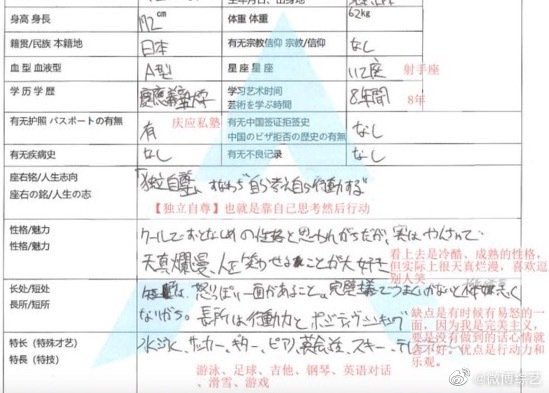 身高 身長 192cm 体重 体重 62kg
籍贯/民族 本籍地 日本 有无宗教信仰 宗教/信仰 なし
血 型 血液型 A型 星 座 星 座 いて座 射手座
学 历 学 歴 慶應義塾大学 学习艺术时间 芸術を学ぶ時間 8年間 8年
庆应私塾
有无护照 パスポートの有無 有 有无中国签证拒签史 中国のビザ拒否の歴史の有無 なし
有无疾病史 なし 有无不良记录 なし
座右铭/人生志向 「独立自尊」 すなわち"自ら考え自ら行動する"
座右の銘/人生の志
【独立自尊】也就是靠自己思考然后行动
性格/魅力 クールで おとなしめの性格と思われがちだが、実は やんちゃで
性格/魅力 天真爛漫、人を笑わせることが大好き
看上去是冷酷、成熟的性格,
但实际上很天真烂漫,喜欢逗
别人笑
长处/短处 短所は、怒りっぽい一面があること。完璧主義でうまくいかないと
長所/短所 ながち。長所は行動力と ポジティブシンキング
缺点是有时候有易怒的一
面,因为我是完美主义,
要是没有做到的话心情就
会不好。优点是行动力和
乐观。
特长(特殊才艺) 水泳、サッカー、ギター、ピアノ、英会話、スキー、
特長(特技)
游泳、足球、吉他、钢琴、英语对话
、滑雪、游戏
@微博综艺